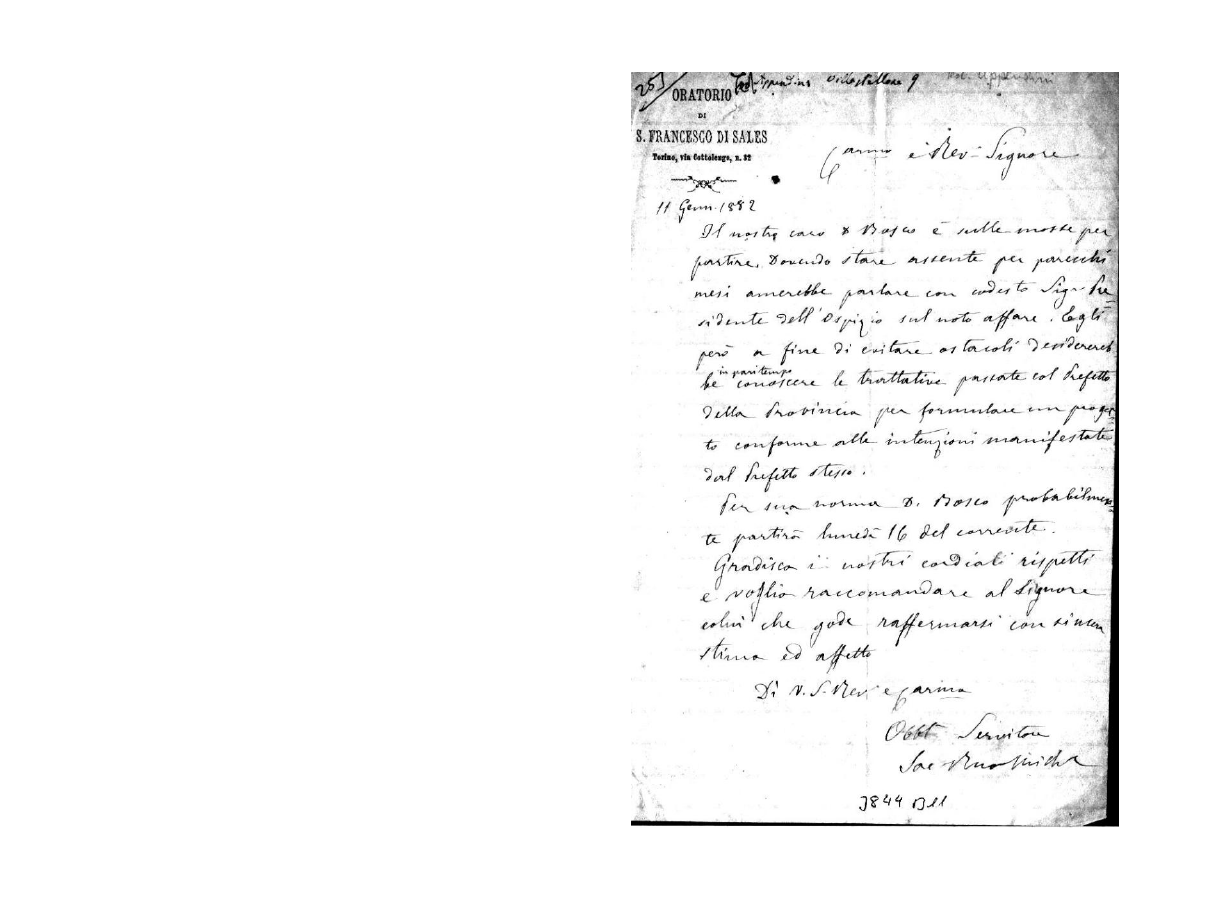 253
Appendino Villastellone 9
Not. Appendini
ORATORIO
DI
S. FRANCESCO DI SALES
Torino, via Cottolengo, n. 32
Carmo e Rev. Signore
11 Genn. 1882
Il nostro caro D Bosco è sulle mosse per
partire. Dovendo stare assente per parecchi
mesi amerebbe parlare con codesto Sigr Pre-
sidente dell'Ospizio sul noto affare. Egli
però a fine di evitare ostacoli desiderereb
in pari tempo
be conoscere le trattative passate col Prefetto
della Provincia per formulare un proget-
to conforme alle intenzioni manifestate
dal Prefetto stesso.
Per sua norma D. Bosco probabilmen-
te partirà lunedì 16 del corrente.
Gradisca i nostri cordiali rispetti
e voglia raccomandare al Signore
colui che gode raffermarsi con sincera
stima ed affetto
Di V. S. Rev. e Carma
Obbl Servitore
Sac Rua Michele
3844 B11